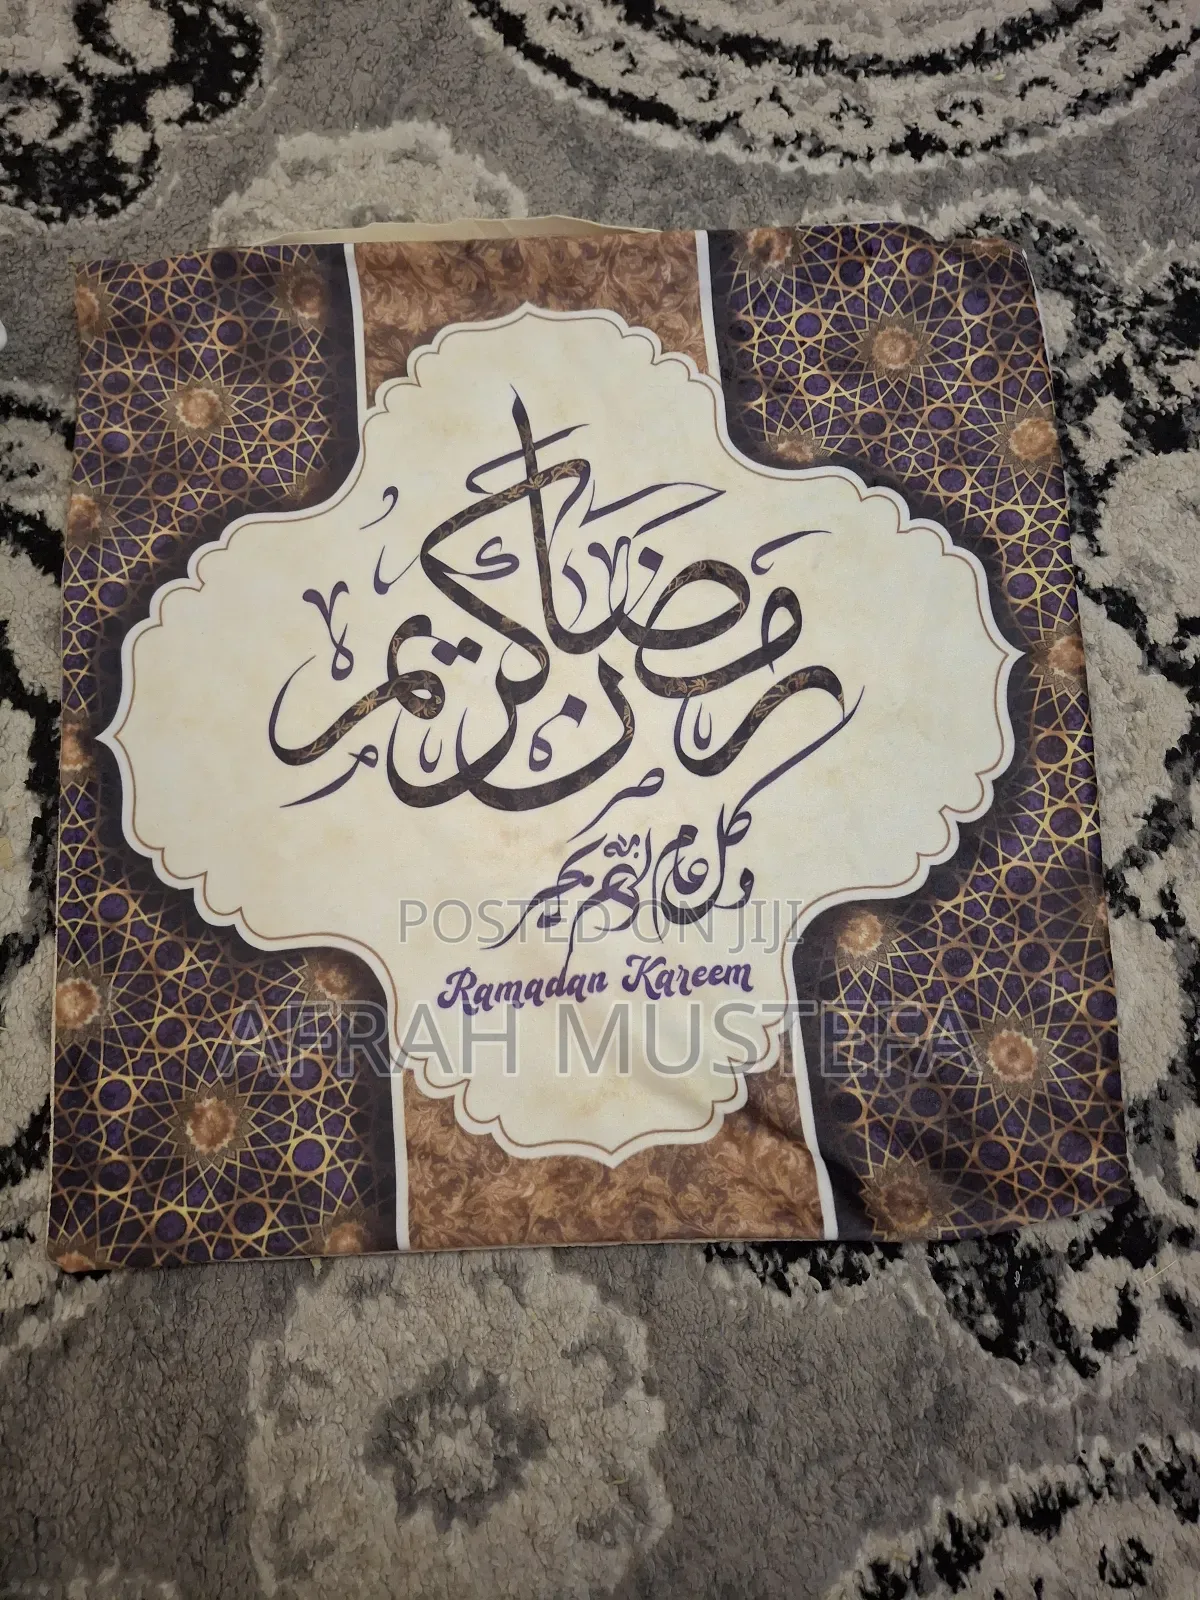 رمضان كريم
وكل عام وأنتم بخير
POSTED ON JIJI
Ramadan Kareem
AFRAH MUSTEFA